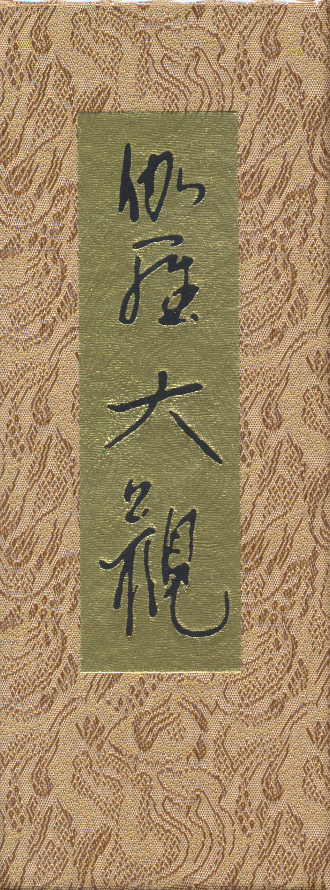 伽羅大観